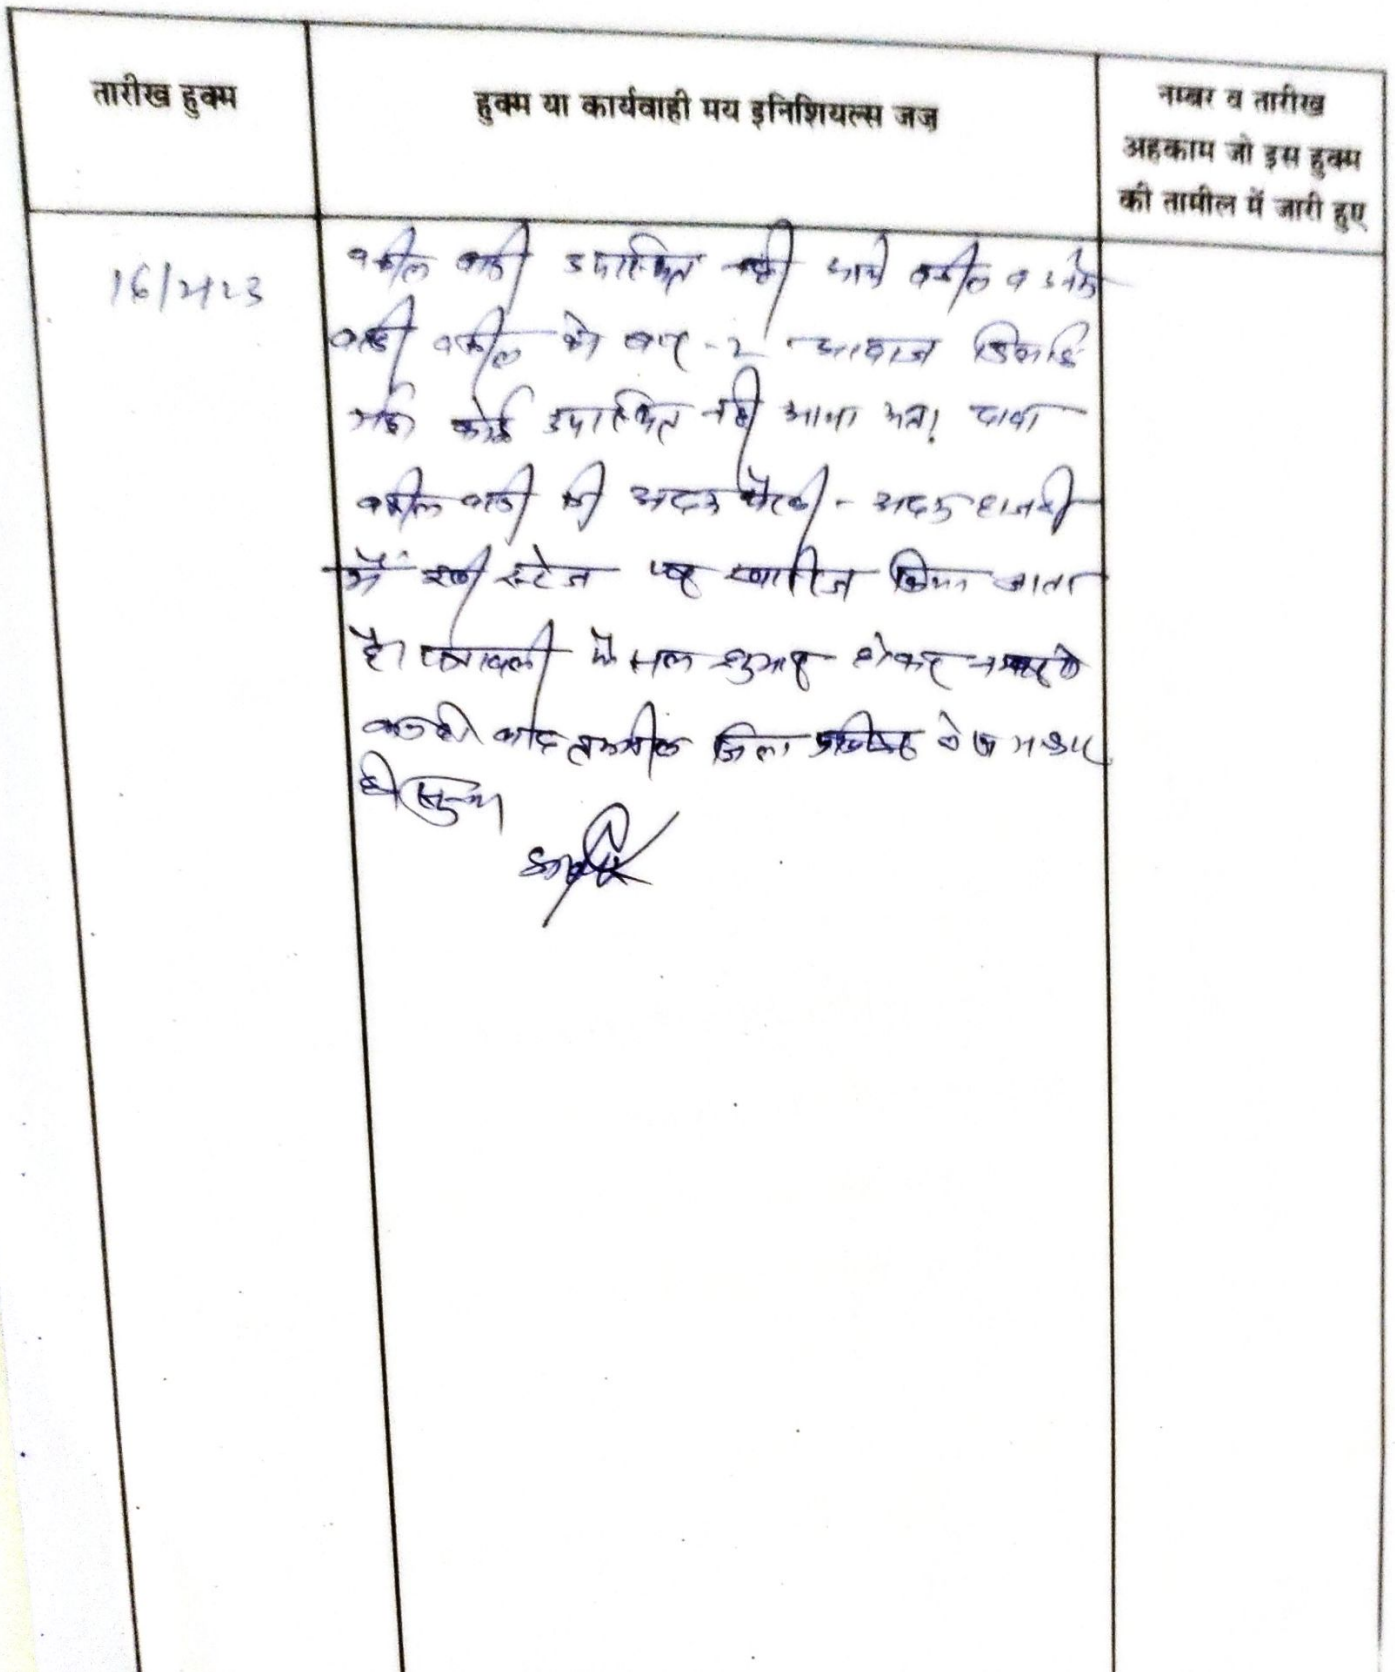 तारीख हुक्म
हुक्म या कार्यवाही मय इनिशियल्स जज
नम्बर व तारीख
अहकाम जो इस हुक्म
की तामील में जारी हुए
वकील वादी उपस्थित नही आये वकील व उनके
वादी वकील को बार-२ आवाज दिलाई
गई कोई उपस्थित नही आया अतः दावा
वकील वादी की अदम पैरवी - अदम हाजरी
में इसी स्टेज पर खारीज किया जाता
है। पत्रावली फैसल शुमार होकर नम्बर से
कम हो बाद तकमील